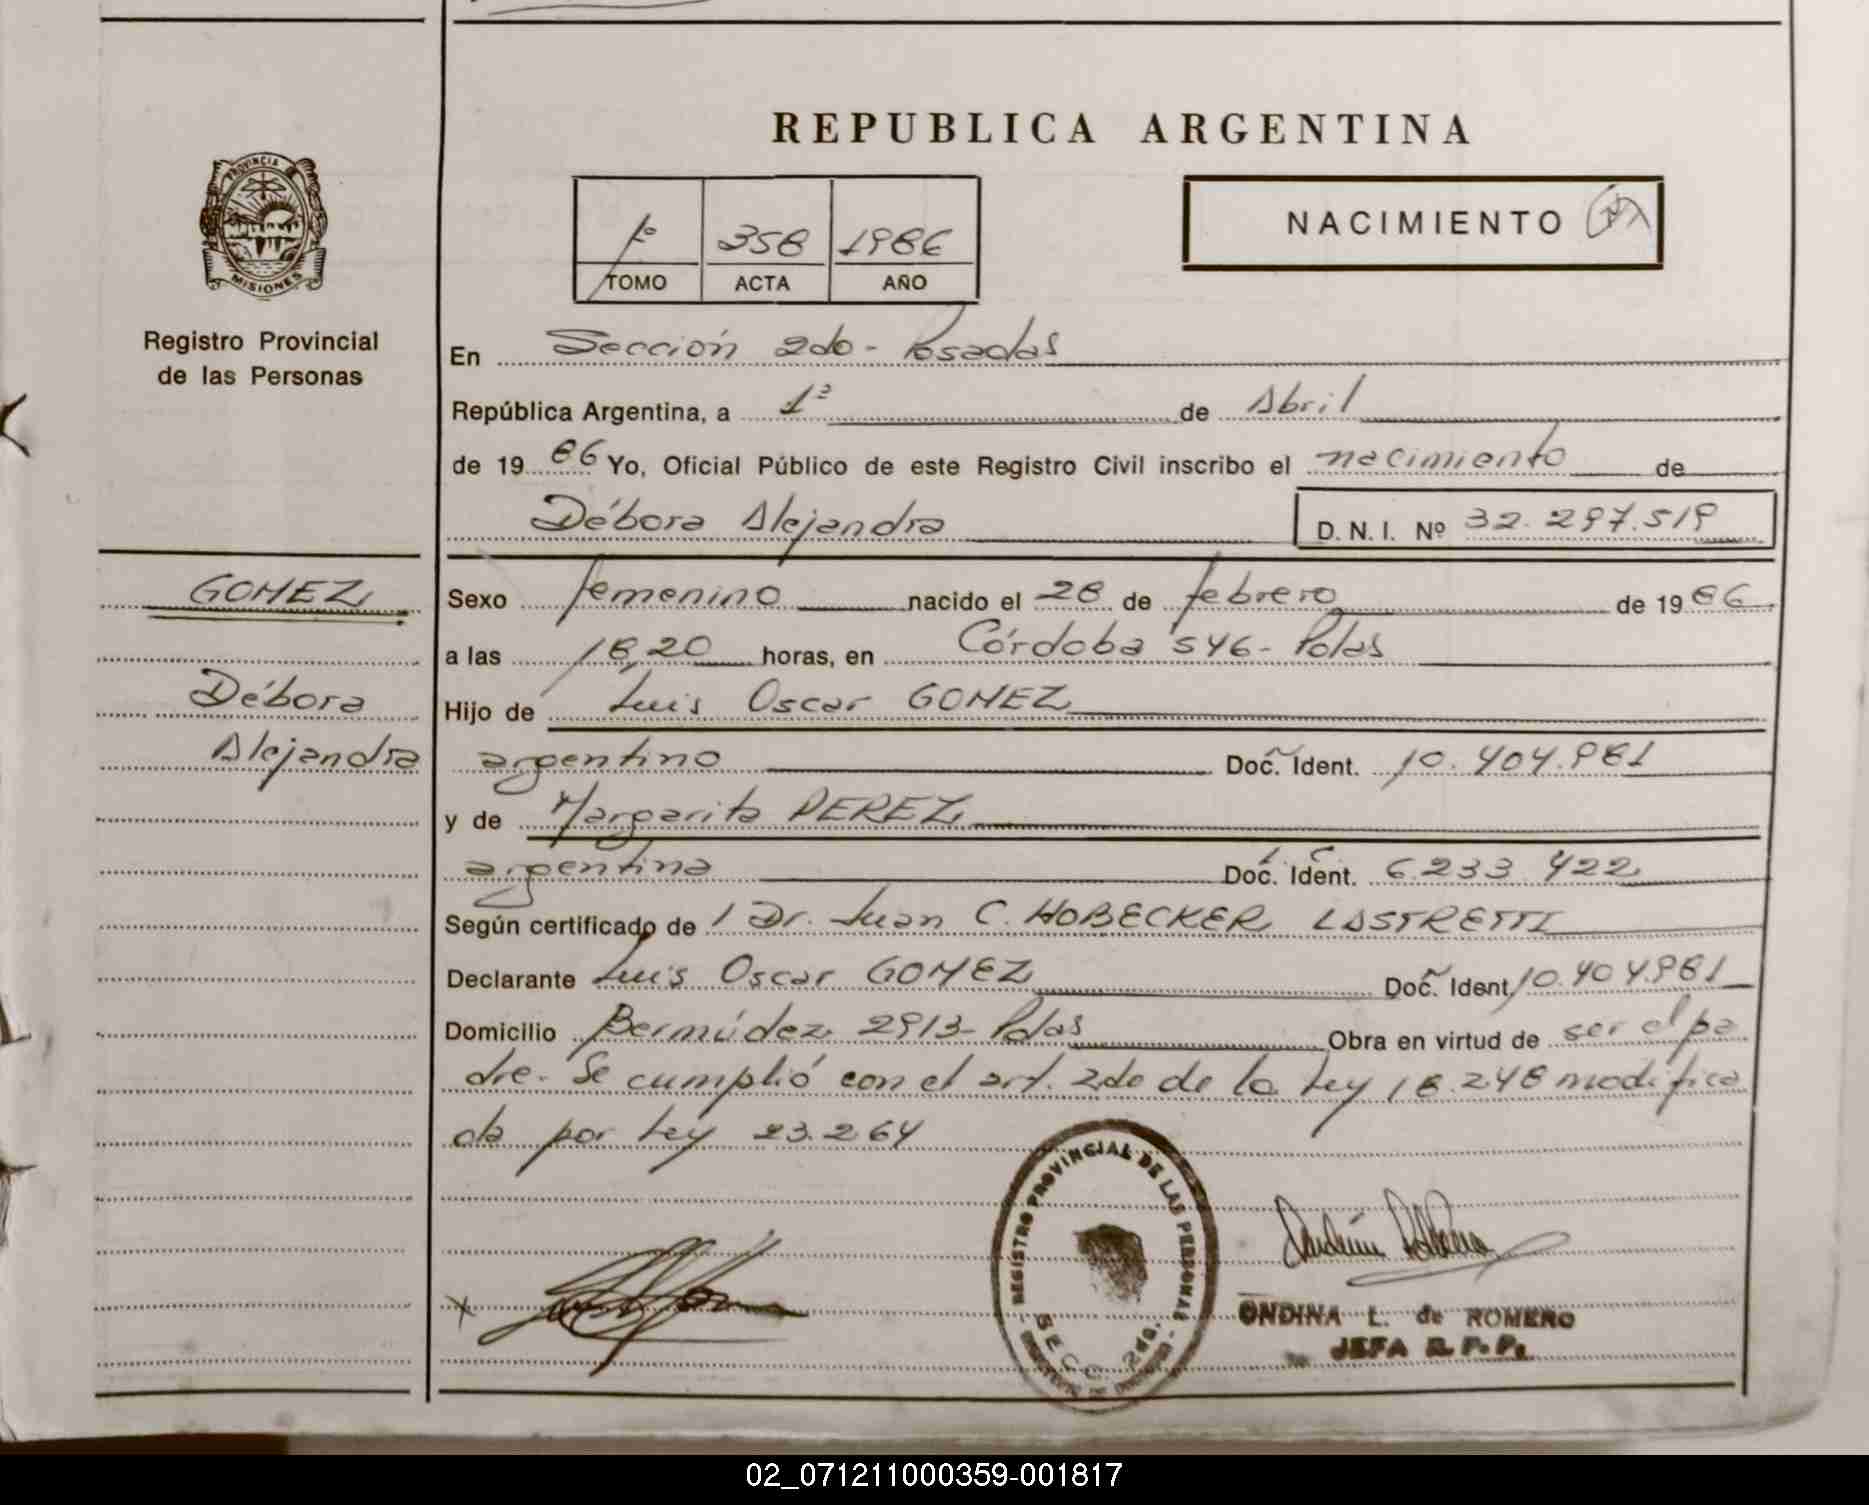 REPUBLICA ARGENTINA
PROVINCIA
MISIONES
Registro Provincial
de las Personas
1º 358 1986
TOMO ACTA AÑO
NACIMIENTO
En Sección 2do - Posadas
República Argentina, a 1º de Abril
de 1986 Yo, Oficial Público de este Registro Civil inscribo el nacimiento de
Débora Alejandra D. N. I. Nº 32.297.519
GOMEZ
Débora
Alejandra
Sexo femenino nacido el 28 de febrero de 1986
a las 18,20 horas, en Córdoba 546 - Pdas
Hijo de Luis Oscar GOMEZ
argentino Doc. Ident. 10.404.981
y de Margarita PEREZ
argentina L. C. Doc. Ident. 6.233.422
Según certificado de / Dr. Juan C. HOBECKER LASTRETTI
Declarante Luis Oscar GOMEZ Doc. Ident. 10.404.981
Domicilio Bermúdez 2913 - Pdas Obra en virtud de ser el pa
dre. Se cumplió con el art. 2do de la Ley 18.248 modifica
da por Ley 23.264
REGISTRO PROVINCIAL DE LAS PERSONAS
SECC. 2da.
X
ONDINA L. de ROMERO
JEFA R. P. P.
02_071211000359-001817